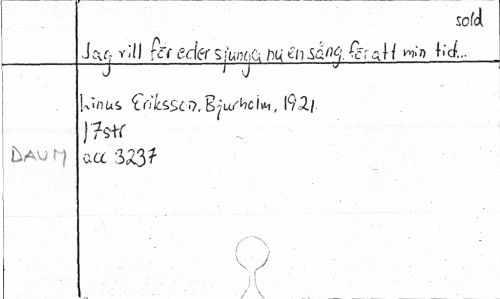 sold
Jag vill för eder sjunga nu en sång för att min tid...
Linus Eriksson, Bjurholm, 1921.
17str
DAUM acc 3237